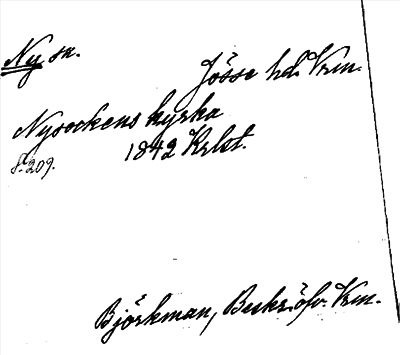 Ny sn.
Jösse hd. Vrm.
Nysockens kyrka
1842 Krlst.
s. 209.
Björkman, Beskr. öfv. Vrm.